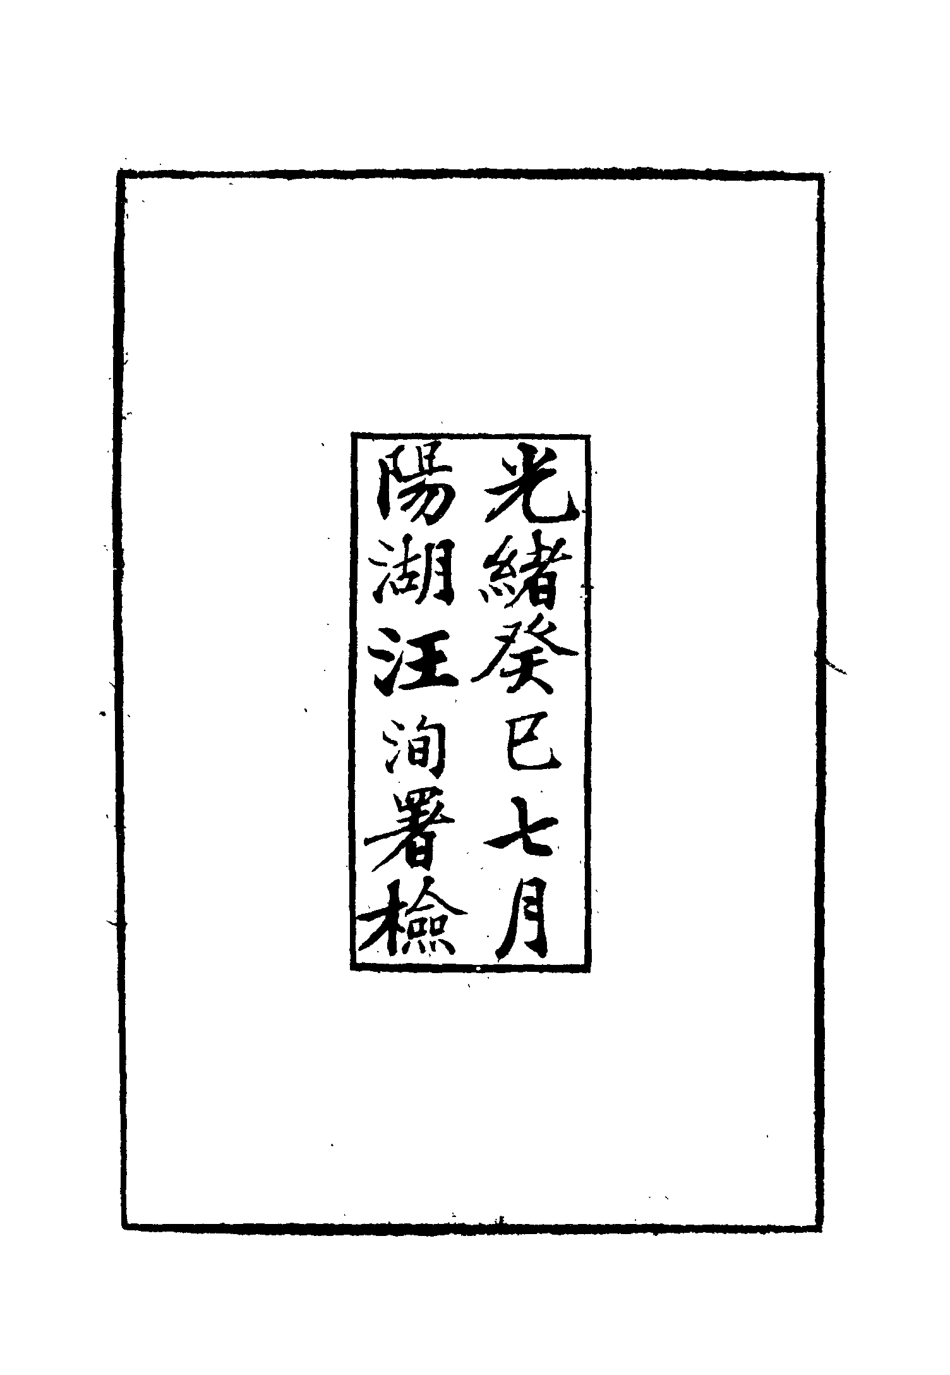 光緒癸巳七月
陽湖汪洵署檢